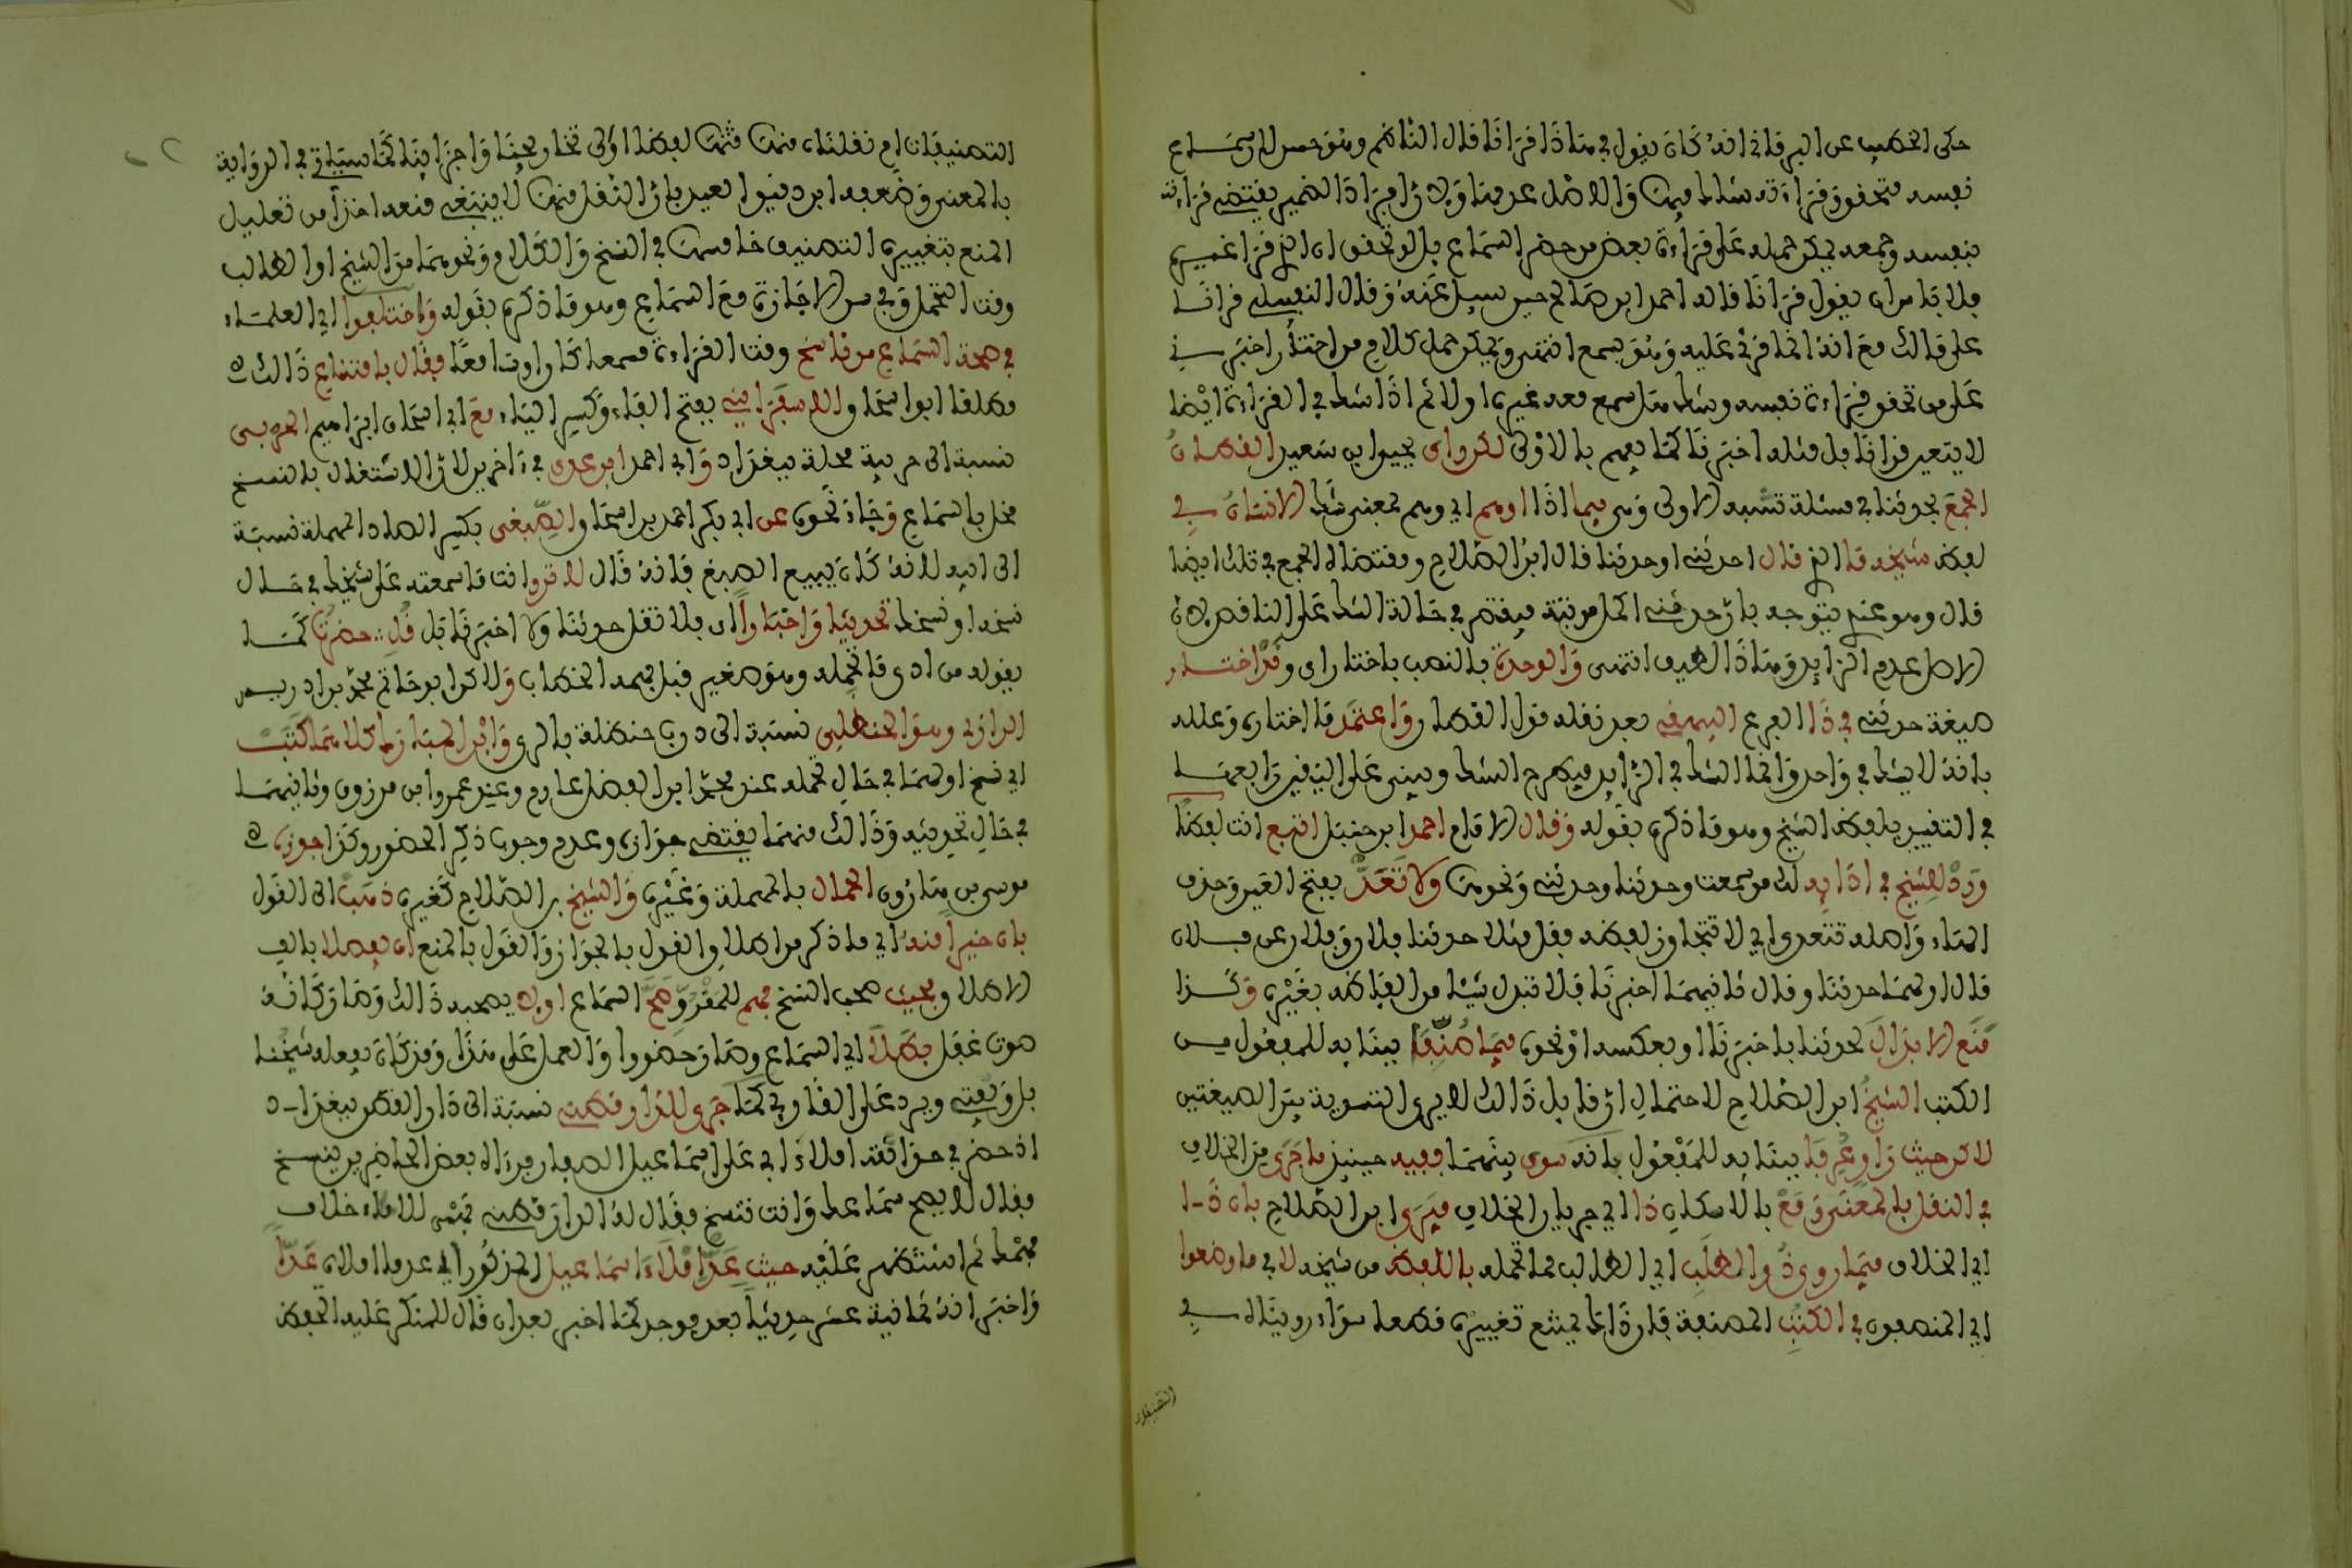 حكى الخطيب عن البرقاني انه كان يقول في هذا قرانا قال الناظم وهو حسن للاجماع
نفسه فتحقق قراءته شك فيها والاصل عدمها ولان افراد الضمير يقتضي قراءته
بنفسه وجمعه يمكن حمله على قراءة بعض من حضر السماع بل لو تحقق ان الذي قرا غيره
فلا باس ان يقول قرانا قاله احمد ابن صالح حين سيل عنه وقال النفيلي قرانا
على مالك مع انه انما قرئ عليه وهو يسمع انتهى ويمكن حمل كلام من اختار اخبرني
على من تحقق قراءة نفسه وشك هل سمع معه غيره اولا ثم اذا شك في القراءة ايضا
لا يتعين قرانا بل مثله اخبرنا كما يعم بالاولى لكن راى يحيوا بن سعيد القطان
الجمع بحدثنا في مسئلة تشبه الاولى وهي فيما اذا اوهم اي وهم بمعنى شك الانسان في
لفظ شيخه ما الذي قال احدثني او حدثنا قال ابن الصلاح ومقتضاه الجمع في تلك ايضا
قال وهو عندي يتوجه بان حدثني اكمل مرتبة فيقتصر في حالة الشك على الناقص لان
الاصل عدم الزايد وهذا لطيف انتهى والوحدة بالنصب باختار اي وقد اختار
صيغة حدثني في ذا الفرع البيهقي بعد نقله قول القطان واعتمد ما اختاره وعلله
بانه لا يشك في واحد وانما الشك في الزايد فيطرح الشك ويبني على اليقين رابعها
في التقيد بلفظ الشيخ وهو ما ذكره بقوله وقال الامام احمد ابن حنبل اتبع انت لفظا
ورد للشيخ في اداءيه لك من سمعت وحدثنا وحدثني ونحوها ولا تعد بفتح العين وحذف
التاء واصله تتعدى اي لا تتجاوز لفظه فقل مثلا حدثنا فلان وفلان عن فلان
قال اولهما حدثنا وقال ثانيهما اخبرنا فلا تبدل شيئا من الفاظه بغيره وكذا
منع الابدال لحدثنا باخبرنا او بعكسه او نحوه فيما صنفا ببنايه للمفعول من
الكتب الشيخ ابن الصلاح لاحتمال ان قايل ذالك لا يرى التسوية بين الصيغتين
لاكن حيث راو عرفا ببنايه للمفعول بانه سوى بينهما ففيه حينيذ ما جرى من الخلاف
في النقل بالمعنى وقع بالاسكان ذا اي جريان الخلاف فيرى ابن الصلاح بان ذا
اي الخلاف فيما روى ذو الطلب اي الطالب مما تحمله باللفظ من شيخه لا في ما وضعوا
اي المنصفون في الكتب المصنفة فان ذا مما يمتنع تغييره قطعا سواء رويناه في
التصنيفات
التصنيفات ام نقلناه منها ثمت لفظا الى تخاريجنا واجزاينا كما سياتي في الرواية
بالمعنى وضعفه ابن دقيق العيد بان النقل منها لا ينبغي منعه اخذا من تعليل
المنع بتغيير التصنيف خامسها في النسخ والكلام ونحوهما من الشيخ او الطالب
وقت التحمل وفي من الاجازة مع السماع وهو ما ذكره بقوله واختلفوا اي العلماء
في صحة السماع من ناسخ وقت القراءة مسمعا كان او سامعا فقال بامتناع ذالك
مطلقا ابو اسحاق الاسفراييني بفتح الفاء وكسر الياء مع ابي اسحاق ابراهيم الحربي
نسبة الى حربية محلة ببغداد وابي احمد ابن عدي في ءاخرين لان الاشتغال بالنسخ
مخل بالسماع وجاء نحوه عن ابي بكر احمد بن اسحاق الصبغي بكسر الصاد المهملة نسبة
الى ابيه لانه كان يبيع الصبغ فانه قال لا ترو انت ما سمعته على شيخك في حال
نسخه او نسخك تحديثا واخبارا اي فلا تقل حدثنا ولا اخبرنا بل قل حضرت كما
يقوله من ادى ما تحمله وهو صغير قبل فهمه الخطاب ولاكن ابو حاتم محمد بن ادريس
الرازي وهو الحنظلي نسبة الى درب حنظلة بالري وابن المبارك كلاهما كتب
اي نسخ اولهما في حال تحمله عند محمد ابن الفضل عارم وعند عمرو ابن مرزوق وثانيهما
في حال تحديثه وذالك منهما يقتضي جوازه وعدم وجوب ذكر الحضور وكذا جوزه
موسى بن هارون الحمال بالمهملة وغيره والشيخ بن الصلاح كغيره ذهب الى القول
بان خيرا منه اي ما ذكر من اطلاق القول بالجواز والقول بالمنع ان يفصلا بالف
الاطلاق فحيث صحب النسخ فهم للمقرو صح السماع او لا يصحبه ذالك وصار كانه
صوت غفل بطلا اي السماع وصار حضورا والعمل على هذا وقد كان يفعله شيخنا
بل ويفتي ويرد على القاري كما جرى للدارقطني نسبة الى دار القطن ببغداد
اذ حضر في حداثته املاء ابي على اسماعيل الصفار فرءاه بعض الحاضرين ينسخ
فقال لا يصح سماعك وانت تنسخ فقال له الدارقطني فهمي للاملاء خلاف
فهمك ثم استظهر عليه حيث عد املاء اسماعيل المذكور اي عدد ما املاه عدا
واخبر انه ثمانية عشر حديثا بعد فوجد كما اخبر بعد ان قال للمنكر عليه اتحفظ